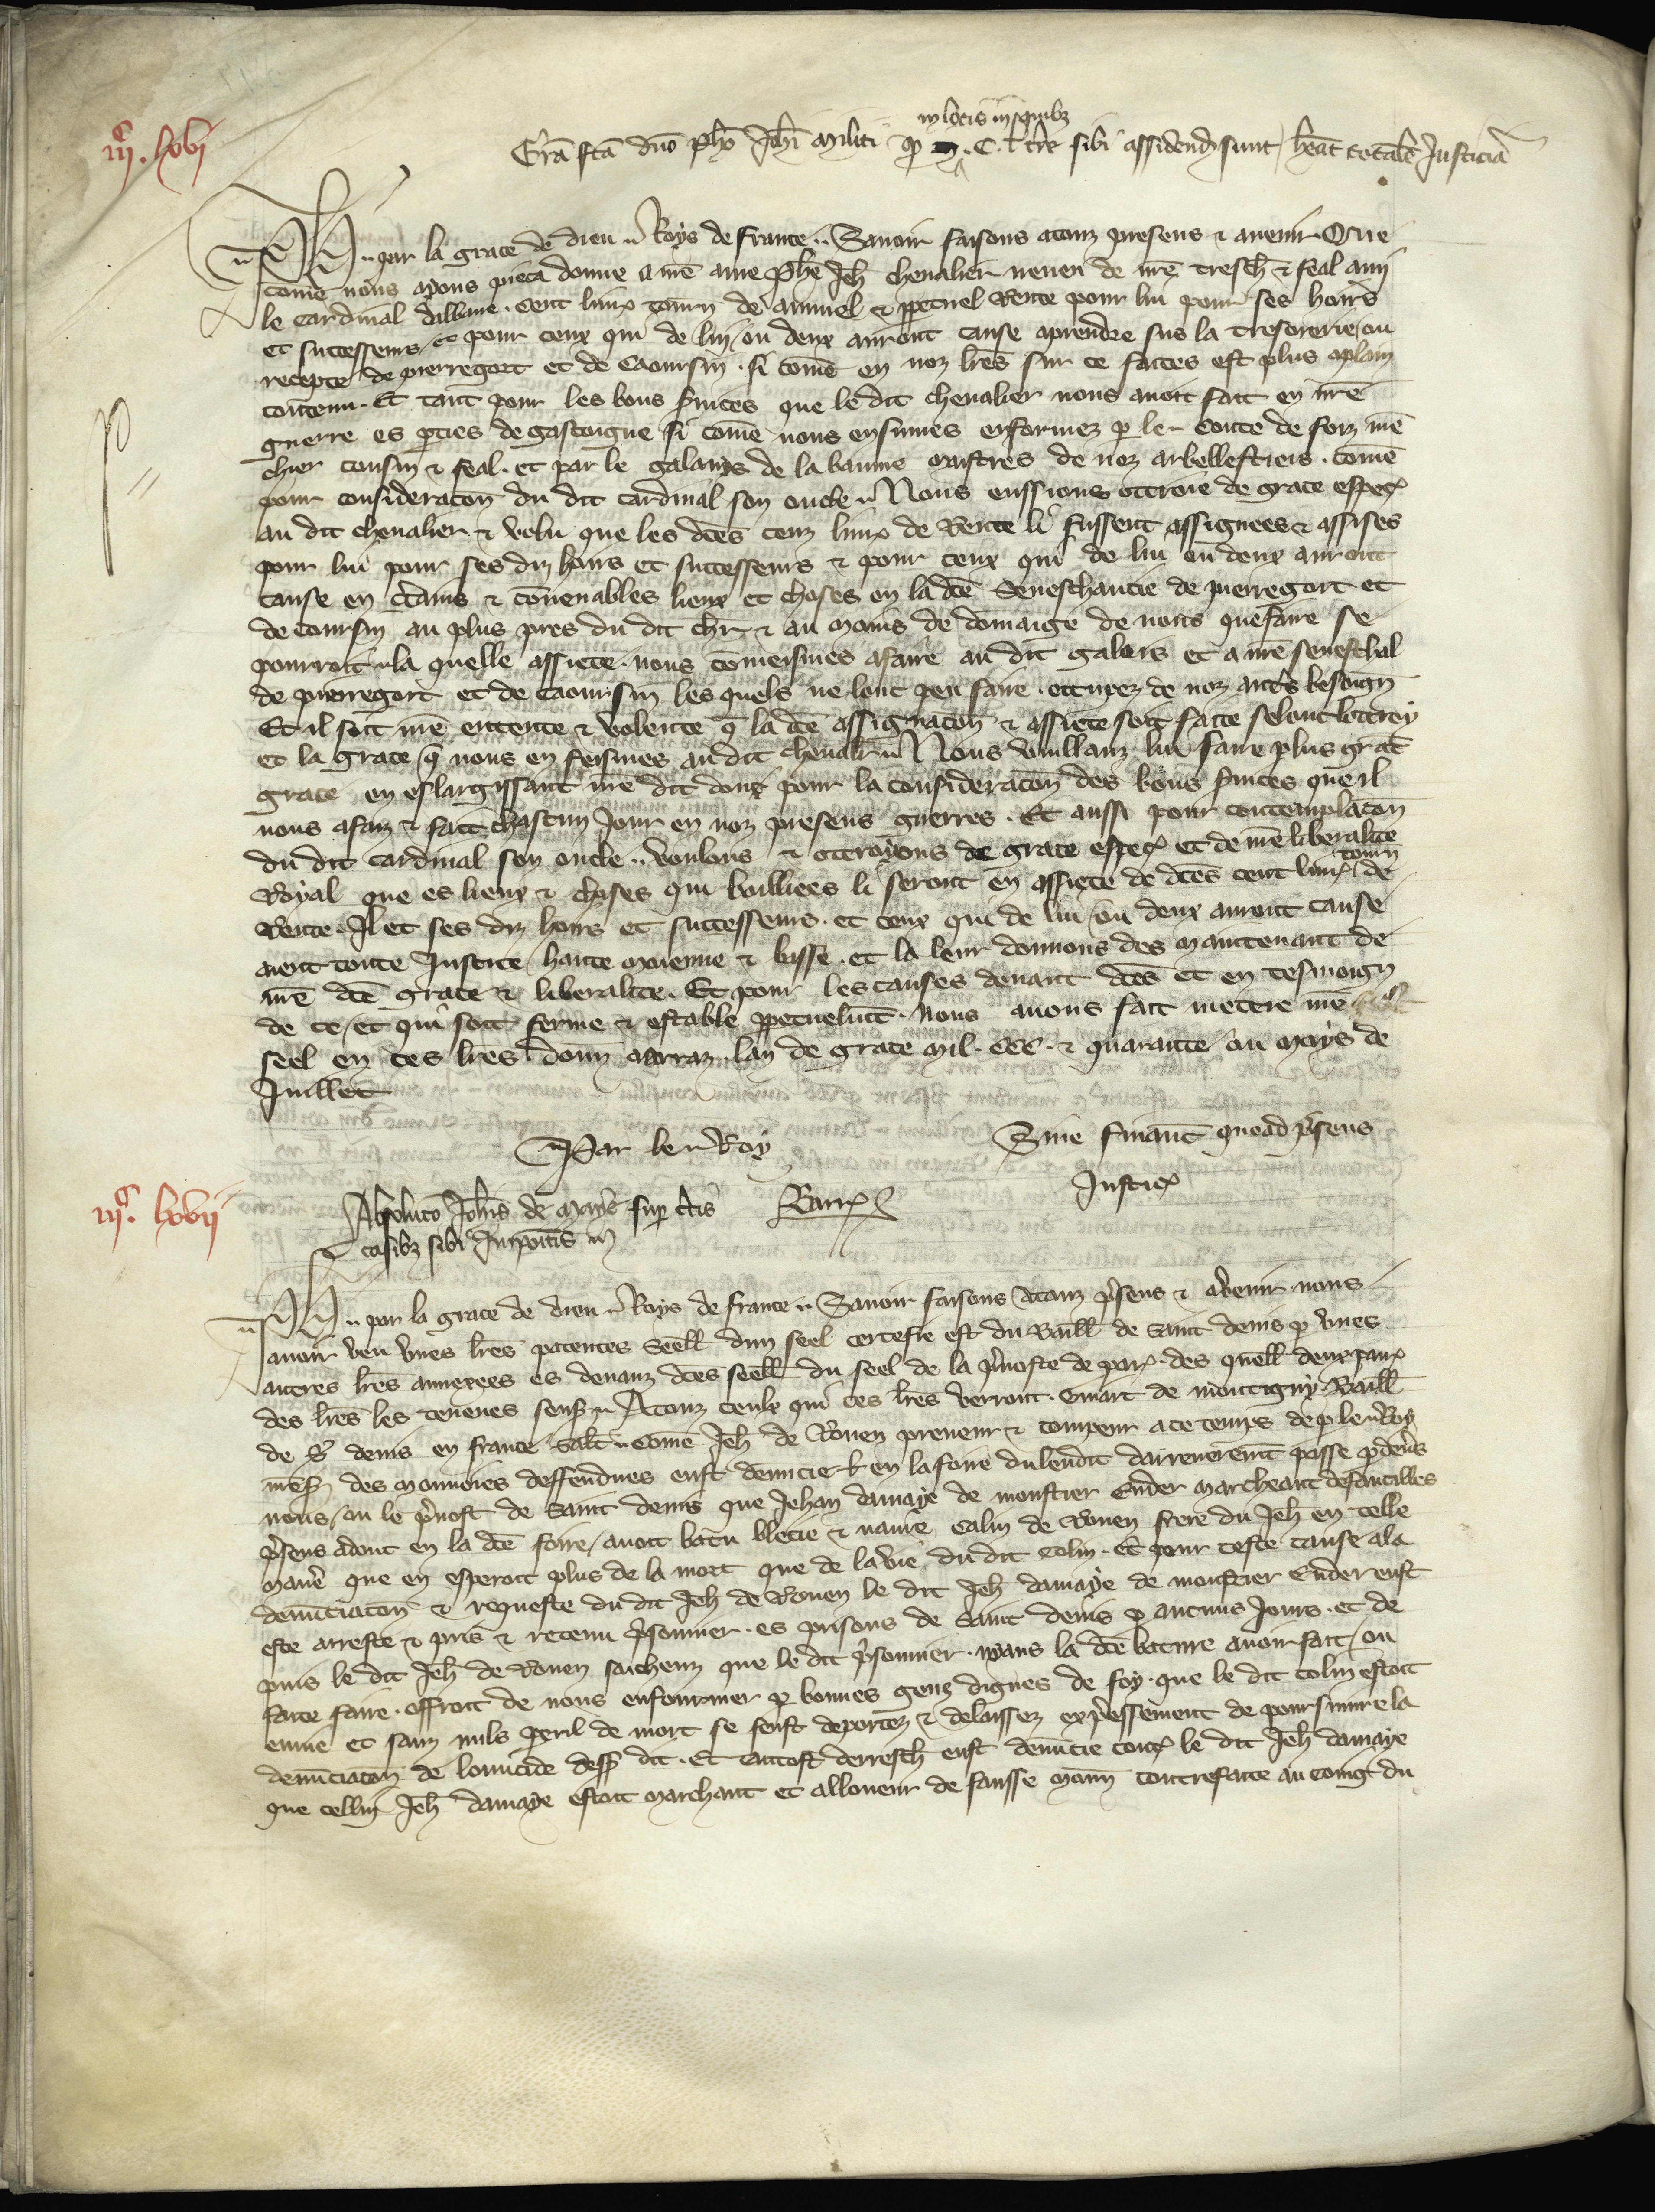 in locis in quibz
iijc. lxvi
Grā fcā dno Pho Johi militi qd C. l. tr sibi assidend sunt heat totale Justicia
Ph. par la grace de dieu Roys de france. Savoir faisons a touz presens & avenir. Que
come nous ayons pieca donne a nre ame Phe Jeh chevalier neveu de nre tresch & feal ami
le Cardinal dalbane. Cent livr tourn de annuel & ppetuel Rente pour lui pour ses hoirs
et successeurs et pour ceux qui de lui ou deux auront cause a prendre sus la tresorerie ou
recepte de pierregort et de Caoursin. si come en noz lres sur ce faittes est plus aplain
contenu. Et tant pour les bons svices que le dit chevalier nous avoit fait en nre
guerre es pties de gascoigne si come nous ensumes enformez p le Conte de foix nre
chier cousin & feal. et par le galays de la baume maistres de noz arbellestiers. Come
pour consideracon du dit Cardinal son oncle. Nous eussions ottroie de grace espec
au dit chevalier & volu que les dces cenz livr de Rente li fussent assignees & assises
pour lui pour ses diz hoirs et successeurs & pour ceux qui de lui ou deux auront
cause en ctains & convenables lieux et choses en la dce Seneschaucie de pierregort et
de Caoursin au plus pres du dit chr & au moins de domaige de nous que faire se
pourroit. la quelle assiete nous comeismes afaire au dit galois et a nre seneschal
de pierregort et de Caoursin les quels ne lont peu faire. occupez de noz autres besoign
Et il soit nre entente & volente q la dce assignacon & assiete soit faitte selont lottroy
et la grace q nous en feismes au dit chevalr. Nous voullanz lui faire plus grat
grace en eslargissant nre dit don pour la consideracon des bons svices que il
nous a faiz & fait chascun jour en noz presens guerres. Et aussi pour contemplacon
du dit Cardinal son oncle. voulons & ottroyons de grace espec et de nre liberalite
Royal que es lieux & choses qui bailliees li seront en assiete de dces cent livr tourn de
Rente. Il et ses diz hoirs et successeurs. et ceux qui de lui ou deux auront cause
aient toute Justice haute moienne & basse. et la leur donnons des maintenant de
nre dce grace & liberalite. Et pour les causes devant dces et en tesmoign
de ce, et qui soit ferme & estable ppetuelmt. nous avons fait mettre nre
seel en ces lres. donn a arraz. lan de grace mil. CCC. & quarante ou moys de
Juillet
Par le Roy Sine financ quoad psens
Barr Justic
iijc. lxvii
Absoluco Johis de maye sup ctis
casibz sibi Impoitis
Ph. par la grace de dieu Roys de france. Savoir faisons a touz psens & avenir. nous
avoir veu vnes lres patentes seell dun seel certefie est du Baill de saint denis p vnes
autres lres annexees es devanz dces seell du seel de la pvoste de par. des quell deux paur
des lres les teneues sensi. A touz ceulx qui ces lres verront. Guiart de montigny Baill
de St denis en france salt. Come Jeh de Rouen preneur & coupeur a ce temps de p le Roy
nres des monnoies deffendues eust denuncie en la foire du lendit darrenremt passe p devs
nous ou le pvost de saint denis que Jehan damaye de monstier Ender marcheant defautilles
psens adont en la dce foire, avoit batu blecie & navre Colin de Rouen frere du Jeh en telle
mane que en esperoit plus de la mort que de la vie du dit Colin. Et pour ceste cause a la
denunciacon & requeste du dit Jeh de Rouen le dit Jeh damaye de monstier Ender eust
este arreste & pris & retenu psonnier. es prisons de saint denis p aucuns jours. et de
puis le dit Jeh de Rouen saichenz que le dit psonnier. mans la dce bature avoir fait, ou
faitte faire. offroit de nous enfourmer p bonnes genz dignes de foy. que le dit Colin estoit
envie et sanz nuls peril de mort se feust deportez & delaissez expressement de poursuivre la
denunciacon de lomicide dess dit. Et tantost derresch eust denuncie contr le dit Jeh damaye
que cellui Jeh damaye estoit marchant et alloueur de fausse monn contrefaitte au coing du